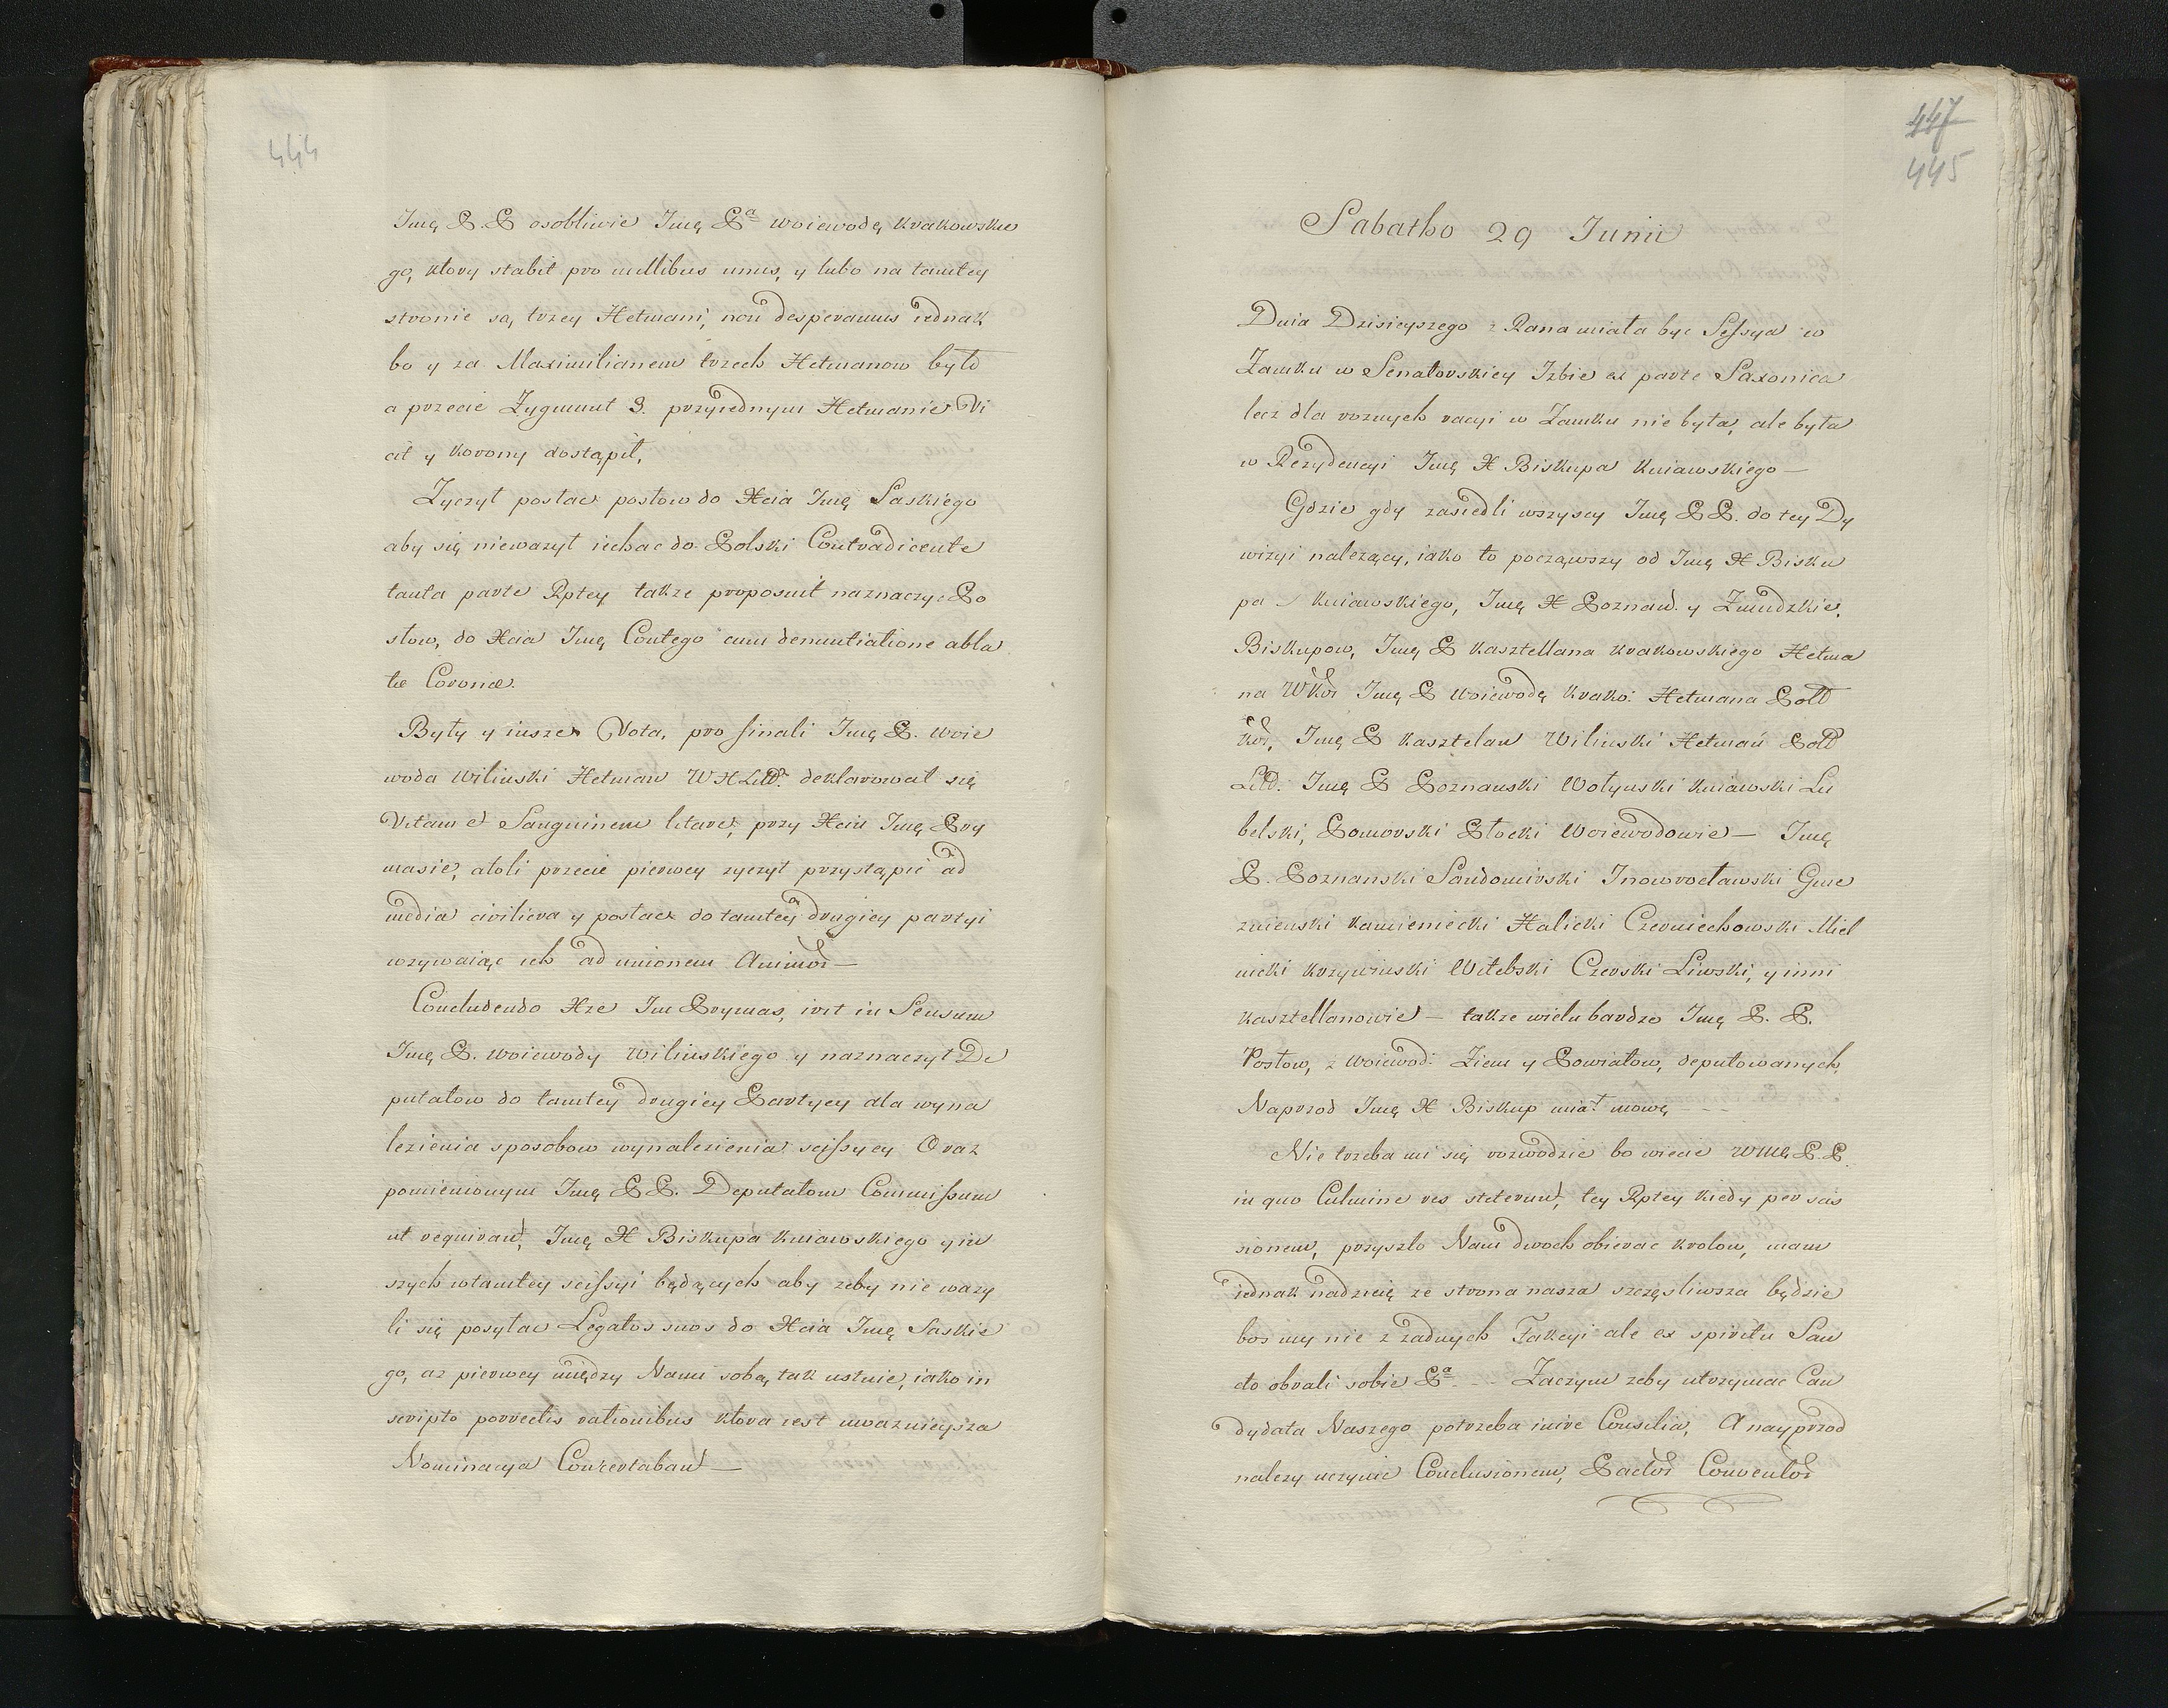 444
Jmę P. P osobliwie Jmę Pᵃ woiewodę krakowskie
go, ktory stabit pro millibus unus, y lubo na tamtey
stronie są, trzey Hetmani, non desperamus iednak
bo y za Maximilianem trzech Hetmanow było
a przecie Zygmunt 3. przyiednym Hetmanie Vi
cit y korony dostąpił,
Zyczył postac posłow do Xcia Jmę Saskiego
aby się nieważył iechac do Polski Contradicente
tanta parte Rptey także proposuit naznaczyc Po
słow, do Xcia Jmę Contego cum denuntiatione abla
tæ Coronæ.
Były y insze Vota, pro finali Jmę P. woie
woda wilinski Hetman WXLitt. deklarował się
Vitam et Sanguinem litare, przy Xciu Jmę Pry
masie, atoli przecie pierwey zyczył przystąpic ad
media civiliora y postac do tamtey drugiey partyi
wzywaiąc ich ad unionem Animoꝝ —
Concludendo Xże Jm Prymas, ivit in Sensum
Jmę P. woiewody wilinskiego y naznaczył De
putatow do tamtey drugiey Partyey dla wyna
lezienia sposobow wynalezienia scissyey Oraz
pomienionym Jmę P P. Deputatom Commissum
ut requirant, Jmę X Biskupa kuiawskiego y in
szych wtamtey scissyi będących aby zeby nie wazy
li się posyłac Legatos suos do Xcia Jmę Saskie
go, az pierwey między Nami sobą, tak ustnie, iako in
scripto porrectis rationibus ktora iest uwaznieysza
Nominacya Concertabant —
447
445
Sabatho 29 Junii
Dnia Dzisieyszego z Rana miała byc Sessya w
Zamku w Senatorskiey Izbie ex parte Saxonica
lecz dla roznych racyi w Zamku nie była, ale była
w Rezydencyi Jmę X Biskupa kuiawskiego —
Gdzie gdy zasiedli wszyscy Jmę P P. do tey Dy
wizyi nalezący, iako to począwszy od Jmę X Bisku
pa kuiawskiego, Jmę X Poznań. y Zmudzkie,
Biskupow, Jmę P kasztellana krakowskiego Hetma
na Wkoꝝ Jmę P woiewodę krako: Hetmana Poll
koꝝ, Jmę P kasztelan Wilinski Hetmań Poll
Litt. Jmę P Poznanski Wołynski kuiawski Lu
belski, Pomorski Płocki Woiewodowie — Jmę
P. Poznanski Sandomirski Inowrocławski Gnie
znienski kamieniecki Halicki Czerniechowski Miel
nicki krzywinski Witebski Czerski Liwski, y inni
kasztellanowie — takze wielu bardzo Jmę P. P.
Posłow, z woiewod: Ziem y Powiatow, deputowanych.
Naprzod Jmę X Biskup miał mowę - - -
Nie trzeba mi się rozwodzic bo wiecie WMę P. P.
in quo Culmine res steterunt, tey Rptey kiedy per scis
sionem, przyszło Nam dwoch obierac krolow, mam
iednak nadzieię ze strona nasza szczęsliwsza będzie
bos my nie z zadnych Fakcyi ale ex spiritu San
cto obrali sobie Pᵃ - - Zaczym zeby utrzymac Can
dydata Naszego potrzeba inire Consilia, A nayprzod
nalezy uczynic Conclusionem, Pactoꝝ Conventoꝝ